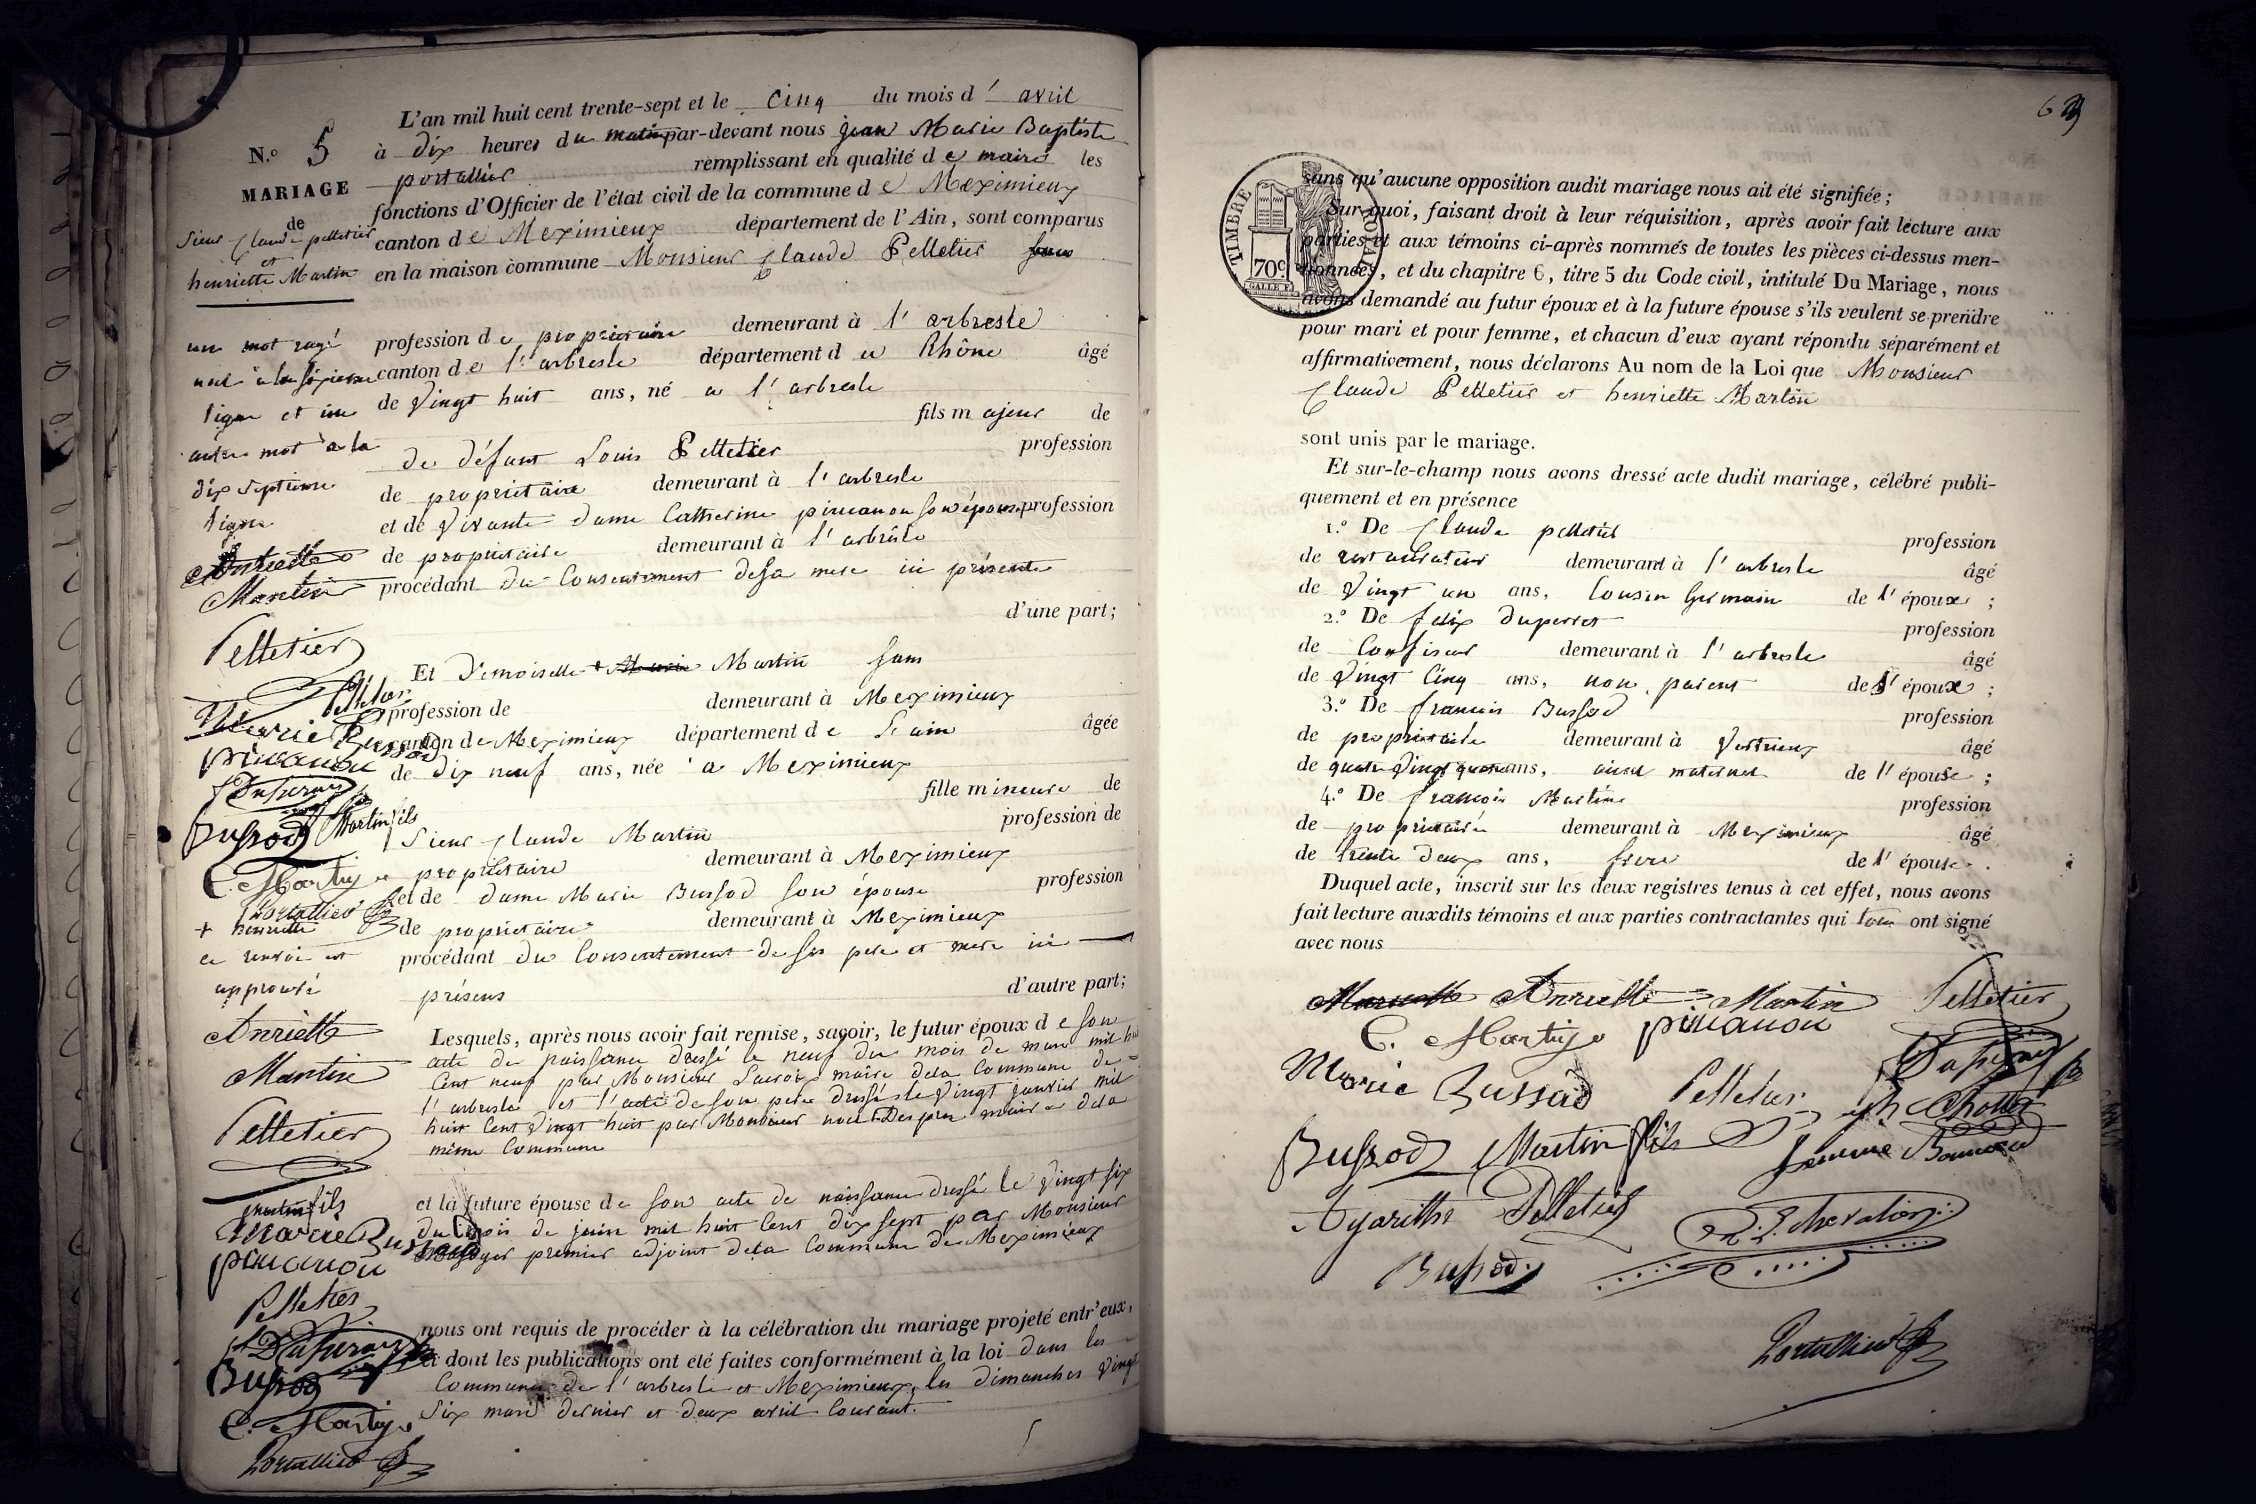 N.º 5
MARIAGE
de
Sieur Claude pelletier
et
henriette Martin
L'an mil huit cent trente-sept et le cinq du mois d' avril
à dix heures du matin par-devant nous jean Marie Baptiste
portallier remplissant en qualité de maire les
fonctions d'Officier de l'état civil de la commune de Meximieux
canton de Meximieux département de l'Ain, sont comparus
en la maison commune Monsieur Claude Pelletier
profession de propriétaire demeurant à l'arbresle
canton de l'arbresle département du Rhône âgé
de vingt huit ans, né a l'arbresle
fils majeur de
de défunt Louis Pelletier profession
de propriétaire demeurant à l'arbresle
et de vivante dame Catherine pinanou son épouse profession
de propriétaire demeurant à l'arbresle
procédant du Consentement de sa mere ici présente
d'une part;
Et Demoiselle + Martin sans
profession de demeurant à Meximieux
canton de Meximieux département de L'ain âgée
de dix neuf ans, née a Meximieux
fille mineure de
Sieur Claude Martin profession de
propriétaire demeurant à Meximieux
et de dame Marie Bussod son épouse profession
de propriétaire demeurant à Meximieux
procédant du Consentement de ses pere et mere ici
présens d'autre part;
Lesquels, après nous avoir fait remise, savoir, le futur époux de son
acte de naissance dressé le neuf du mois de mars mil huit
Cent neuf par Monsieur Lacroix maire de la Commune de
l'arbresle et l'acte de son pere dressé le vingt janvier mil
huit Cent vingt huit par Monsieur maire de la
même Commune
et la future épouse de son acte de naissance dressé le vingt six
du mois de juin mil huit Cent dix sept par Monsieur
premier adjoint de la Commune de Meximieux
nous ont requis de procéder à la célébration du mariage projeté entr'eux,
et dont les publications ont été faites conformément à la loi dans les
Communes de l'arbresle et Meximieux, les dimanches vingt
six mars dernier et deux avril Courant.
un mot rayé
nul à la sixieme
ligne et un
autre mot à la
dix septieme
ligne
Anriette
Martin
Pelletier
Pelletier
Marie Bussod
pinanou
Bussod Martin fils
C. Martin
Portallier
+ henriette
ce renvoi est
approuvé
Anriette
Martin
Pelletier
Martin fils
Marie Bussod
pinanou
Pelletier
Bussod
C. Martin
Portallier
TIMBRE ROYAL
70c.
sans qu'aucune opposition audit mariage nous ait été signifiée;
Sur quoi, faisant droit à leur réquisition, après avoir fait lecture aux
parties et aux témoins ci-après nommés de toutes les pièces ci-dessus men-
tionnées, et du chapitre 6, titre 5 du Code civil, intitulé Du Mariage, nous
avons demandé au futur époux et à la future épouse s'ils veulent se prendre
pour mari et pour femme, et chacun d'eux ayant répondu séparément et
affirmativement, nous déclarons Au nom de la Loi que Monsieur
Claude Pelletier et henriette Martin
sont unis par le mariage.
Et sur-le-champ nous avons dressé acte dudit mariage, célébré publi-
quement et en présence
1.º De Claude pelletier profession
de restaurateur demeurant à l'arbresle âgé
de vingt un ans, Cousin Germain de l'époux ;
2.º De felix duperret profession
de Confiseur demeurant à l'arbresle âgé
de vingt Cinq ans, non parent de l'époux ;
3.º De francois Bussod profession
de propriétaire demeurant à Vertrieux âgé
de quatre vingt quatre ans, aieul maternel de l'épouse ;
4.º De francois Martin profession
de propriétaire demeurant à Meximieux âgé
de trente deux ans, frere de l'épouse .
Duquel acte, inscrit sur les deux registres tenus à cet effet, nous avons
fait lecture auxdits témoins et aux parties contractantes qui tous ont signé
avec nous
Anriette Martin Pelletier
C. Martin pinanou
Marie Bussod Pelletier
Bussod Martin fils
Pelletier
Chevalier
Bussod
Portallier